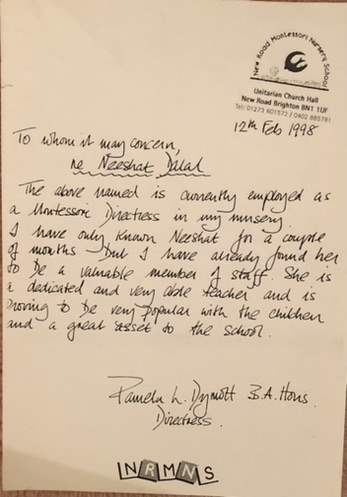 New Road Montessori Nursery School
Unitarian Church Hall
New Road Brighton BN1 1UF
Tel: 01273 601572 / 0402 885781
12th Feb 1998
To whom it may concern,
re Neeshat Dalal
The above named is currently employed as
a Montessori Directress in my nursery.
I have only known Neeshat for a couple
of months but I have already found her
to be a valuable member of staff. She is
a dedicated and very able teacher and is
proving to be very popular with the children
and a great asset to the school.
Pamela L. Dymott B.A. Hons.
Directress.
NRMNS